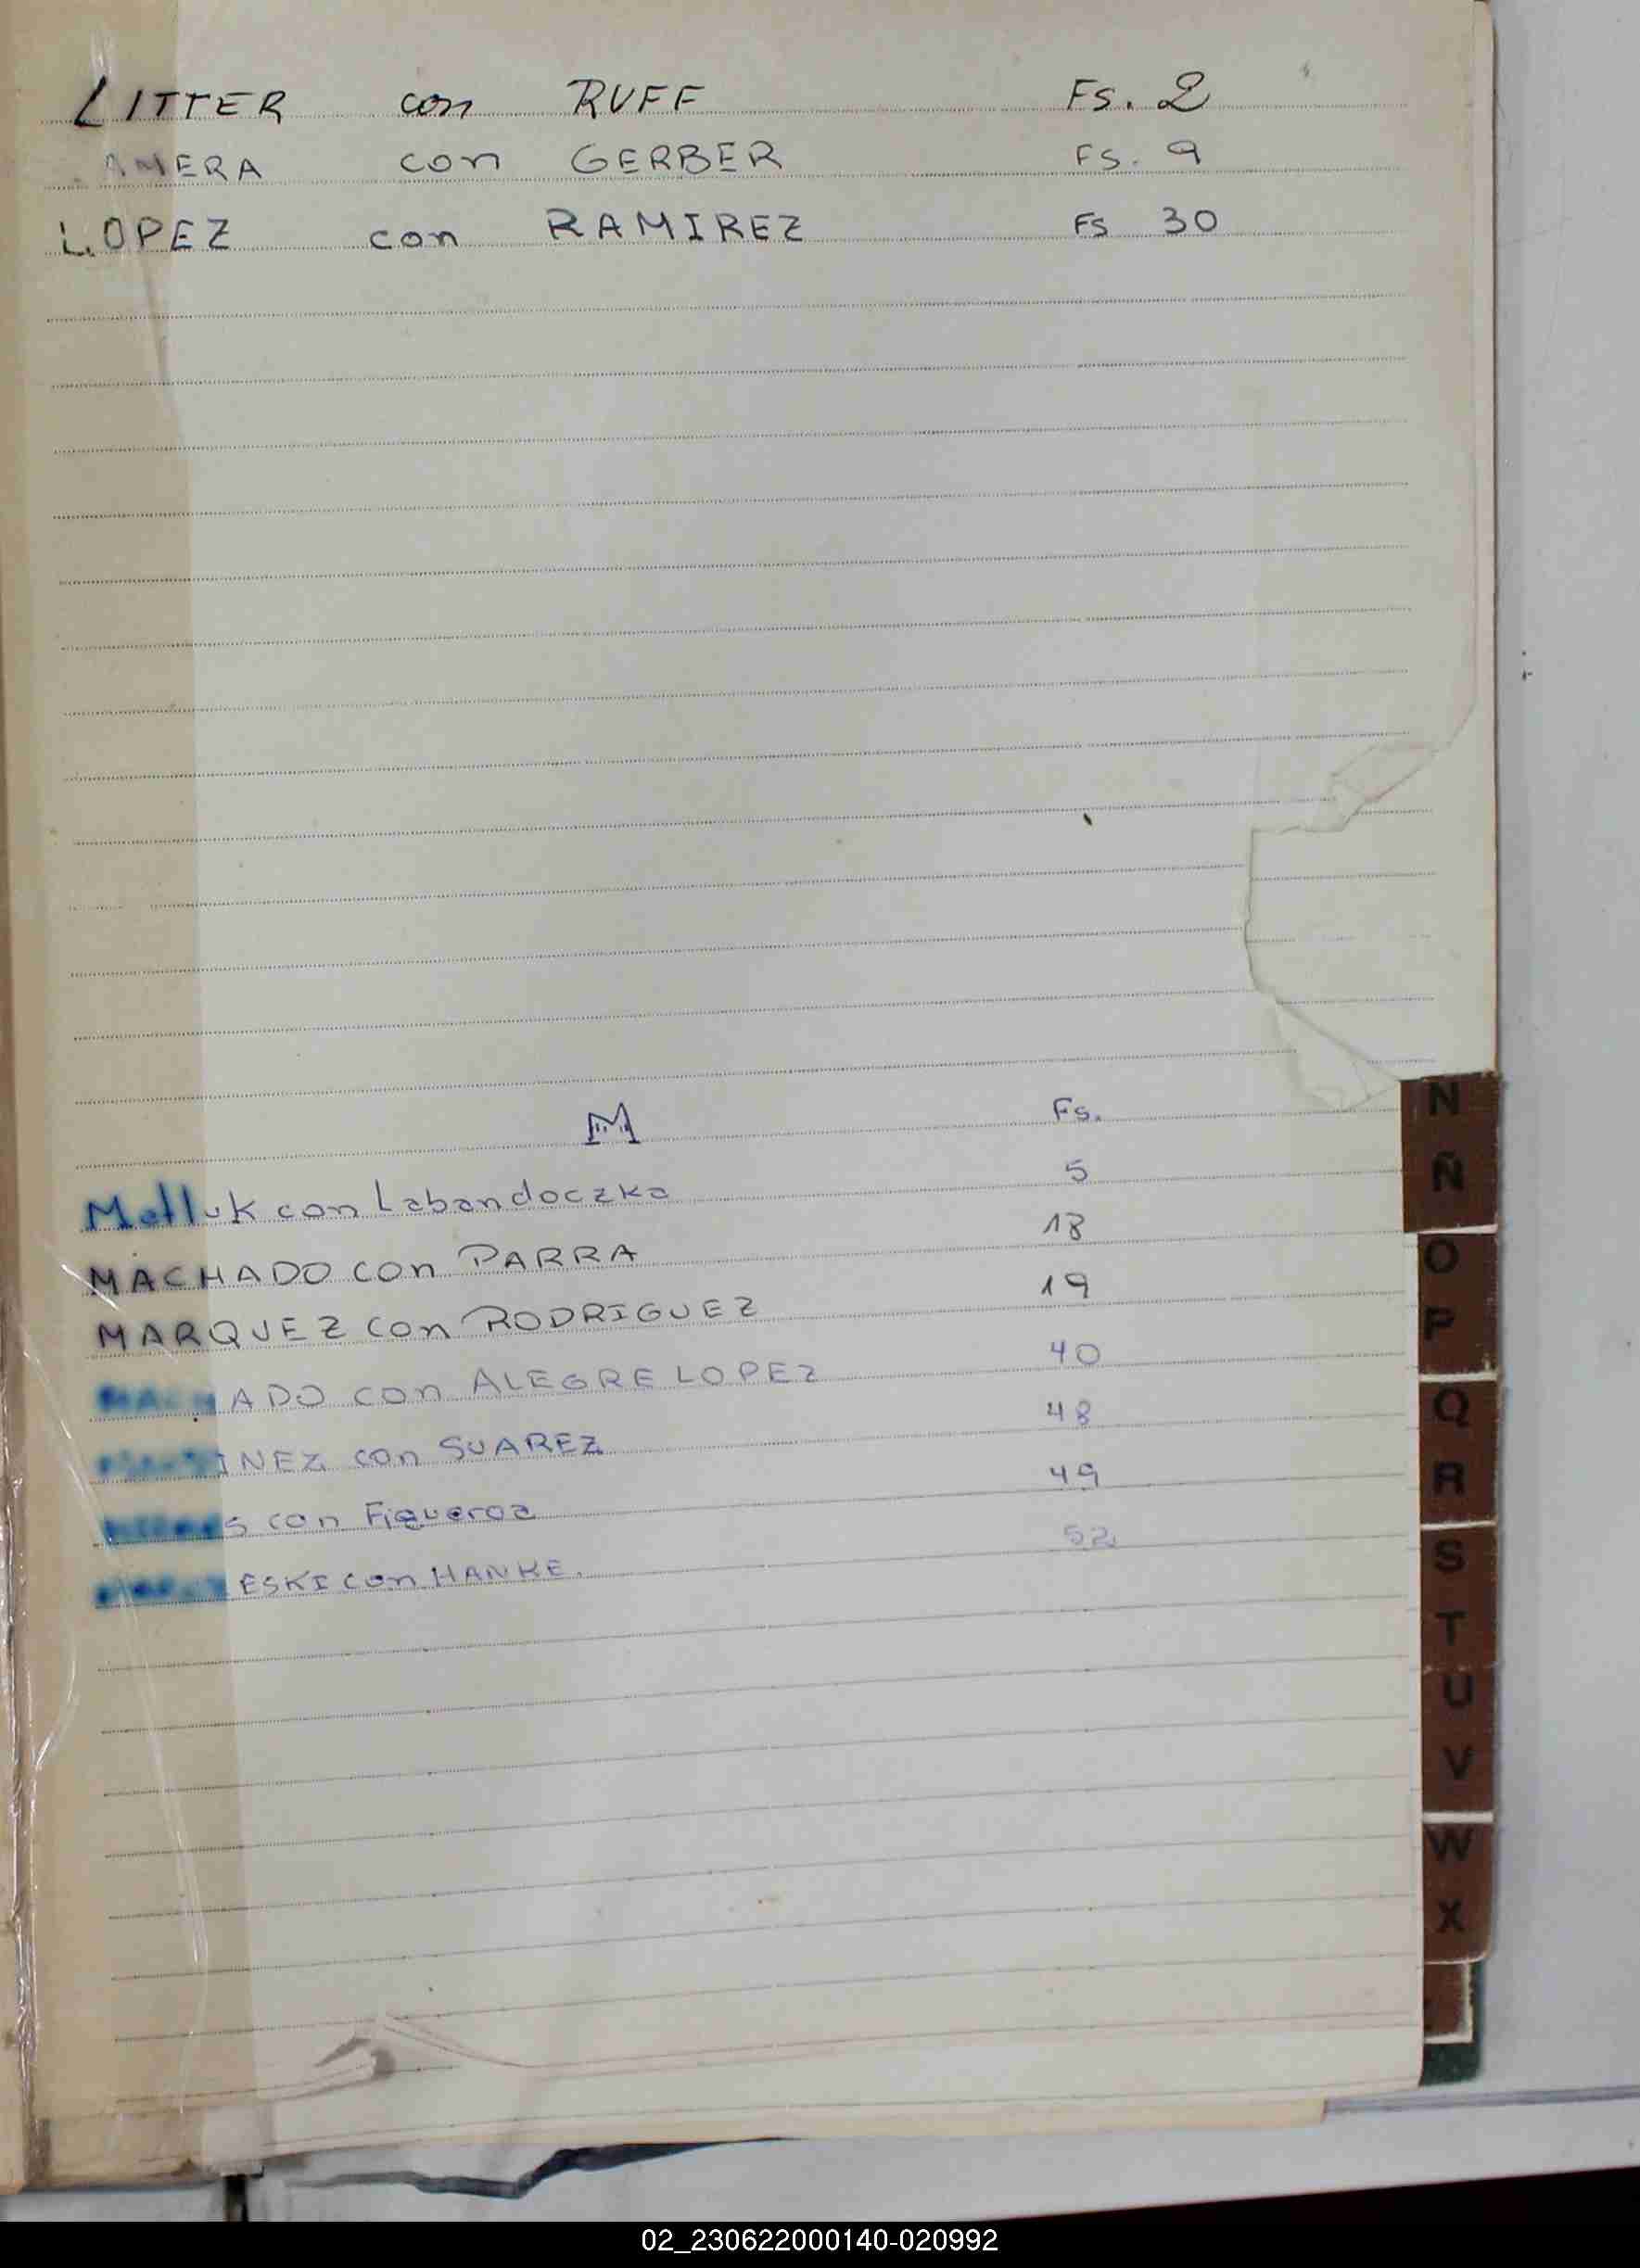 LITTER con RUFF Fs. 2
con GERBER FS. 9
LOPEZ con RAMIREZ FS 30
M Fs.
Motluk con Labandoczka 5
MACHADO con PARRA 18
MARQUEZ con RODRIGUEZ 19
MACHADO con ALEGRE LOPEZ 40
con SUAREZ 48
con Figueroa 49
con HANKE. 52
N
Ñ
O
P
Q
R
S
T
U
V
W
X
02_230622000140-020992